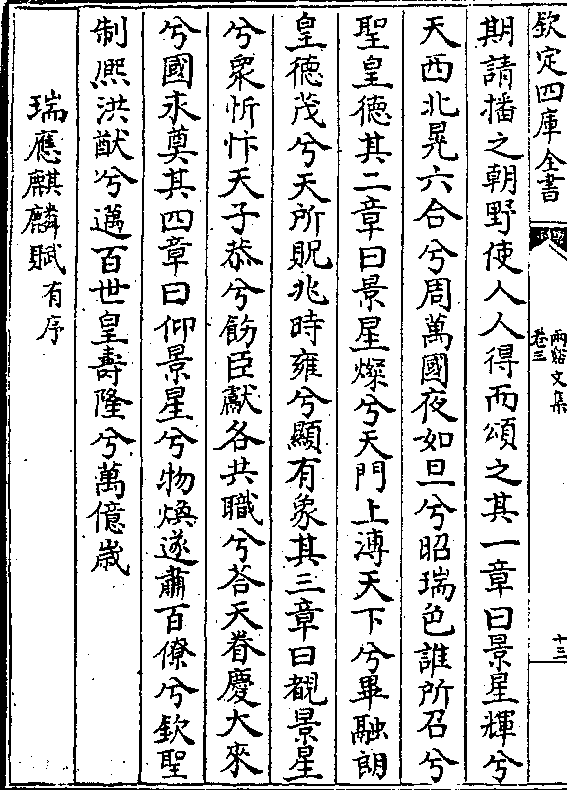 欽定四庫全書
兩谿文集
卷三
十三
期請播之朝野使人人得而頌之其一章曰景星輝兮
天西北晃六合兮周萬國夜如旦兮昭瑞色誰所召兮
聖皇德其二章曰景星燦兮天門上溥天下兮畢融朗
皇德茂兮天所貺兆時雍兮顯有象其三章曰覩景星
兮衆忻忭天子恭兮飭臣獻各共職兮荅天眷慶大來
兮國永奠其四章曰仰景星兮物煥遂肅百僚兮欽聖
制熙洪猷兮邁百世皇壽隆兮萬億歲
瑞應麒麟賦有序